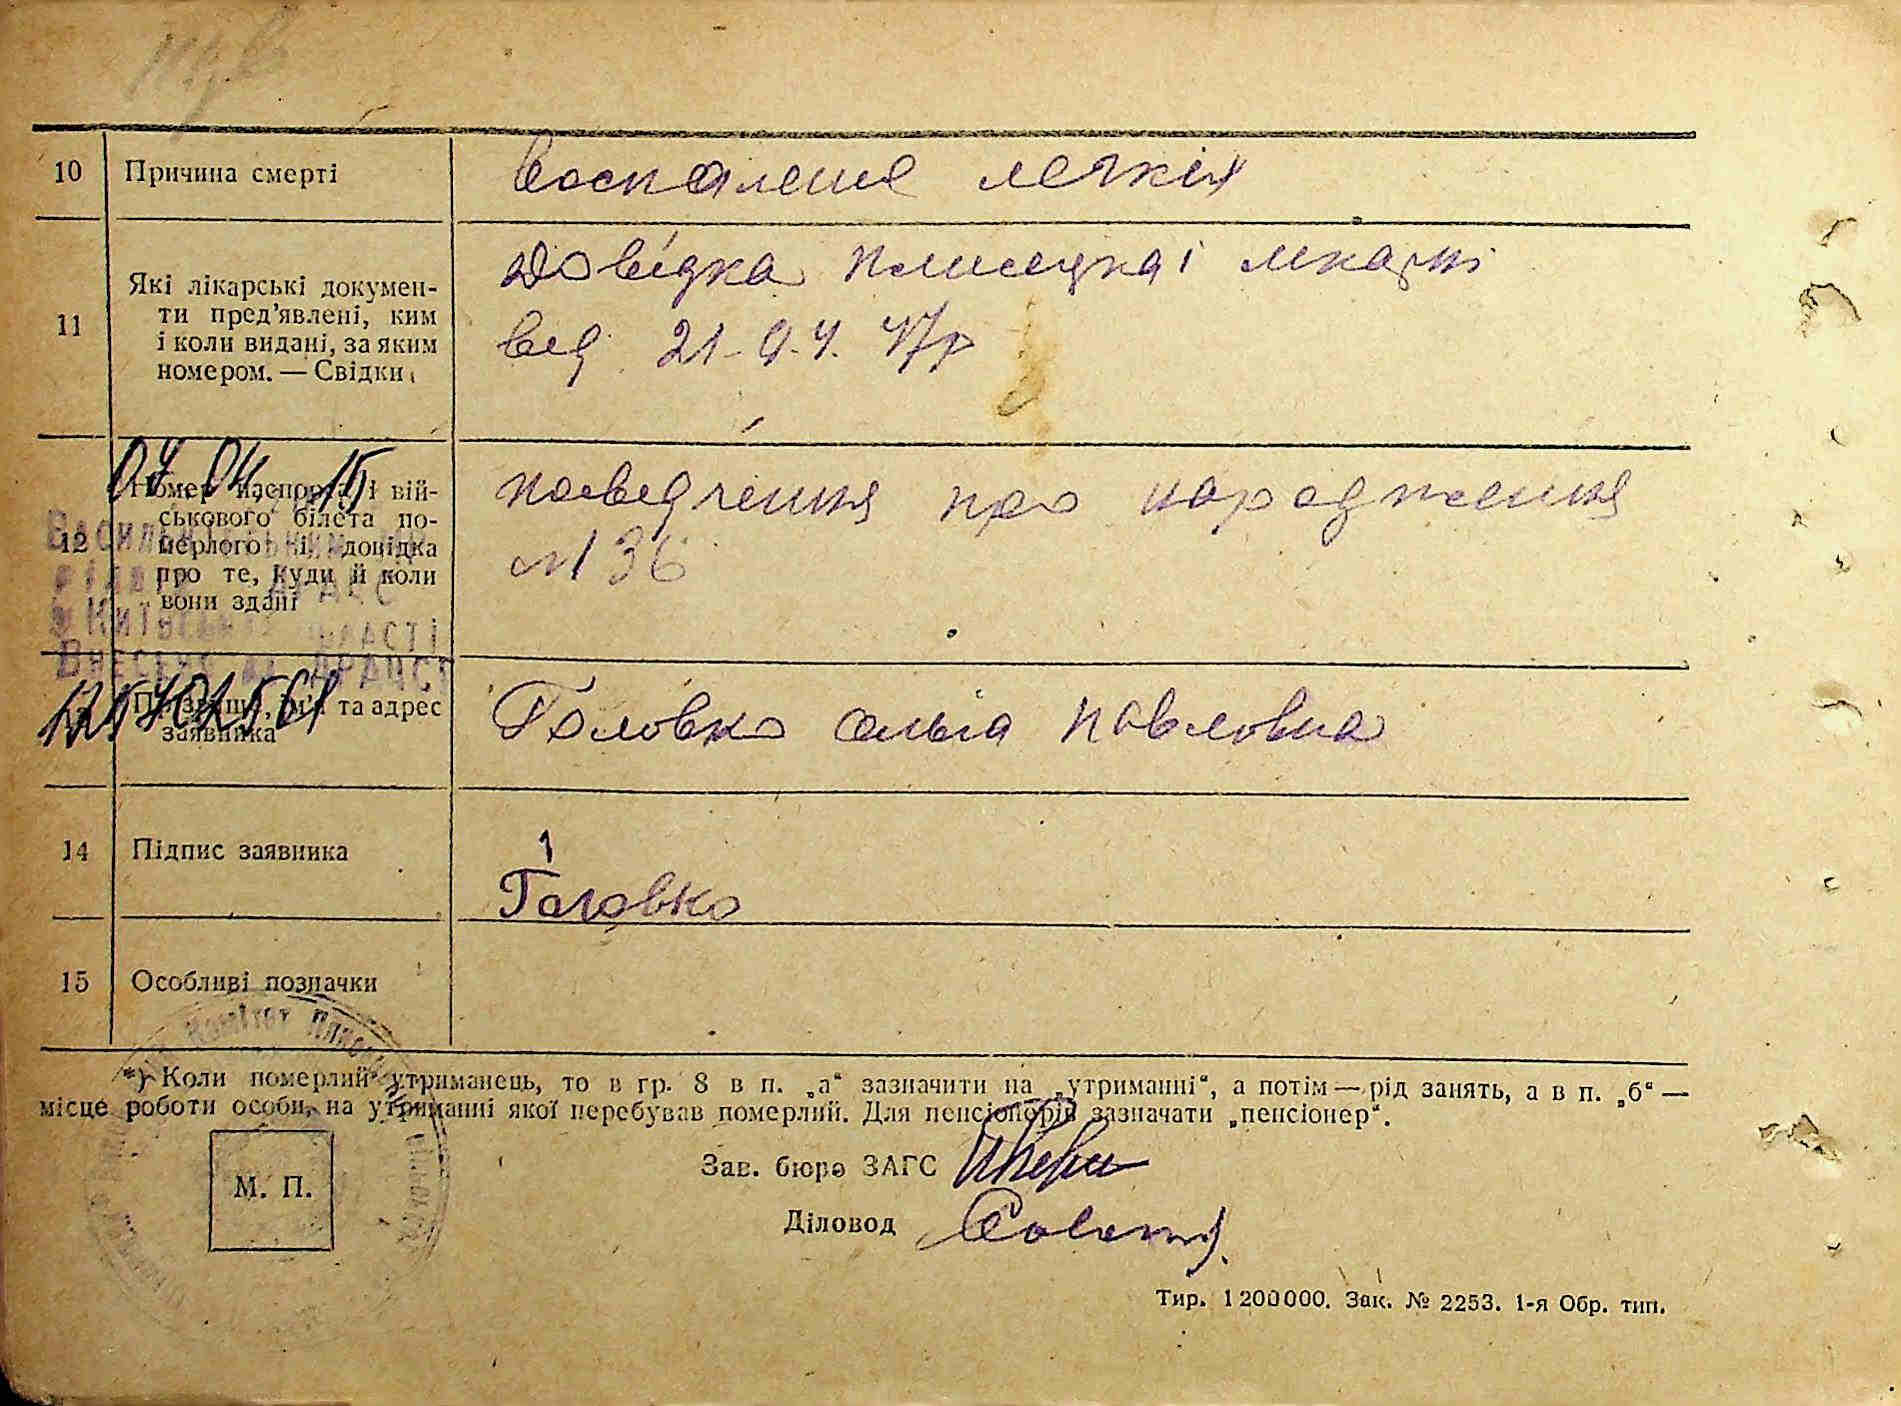 10 Причина смерті
воспаление легкіх
11 Які лікарські докумен-
ти пред’явлені, ким
і коли видані, за яким
номером. — Свідки
Довідка плисецкаі лікарні
від 21-04. 47р
07 04 15
12 Номер паспорта і вій-
ськового білета по-
мерлого і довідка
про те, куди й коли
вони здані
посведчення про народження
№ 36
Васильківським
Київській області
Прізвище, ім’я та адрес
заявника
Головко Ольга Павловна
14 Підпис заявника
Головко
15 Особливі позначки
*) Коли померлий утриманець, то в гр. 8 в п. „а“ зазначити на „утриманні“, а потім — рід занять, а в п. „б“ —
місце роботи особи, на утриманні якої перебував померлий. Для пенсіонерів зазначати „пенсіонер“.
Зав. бюро ЗАГС
М. П.
Діловод
Тир. 1200000. Зак. № 2253. 1-я Обр. тип.